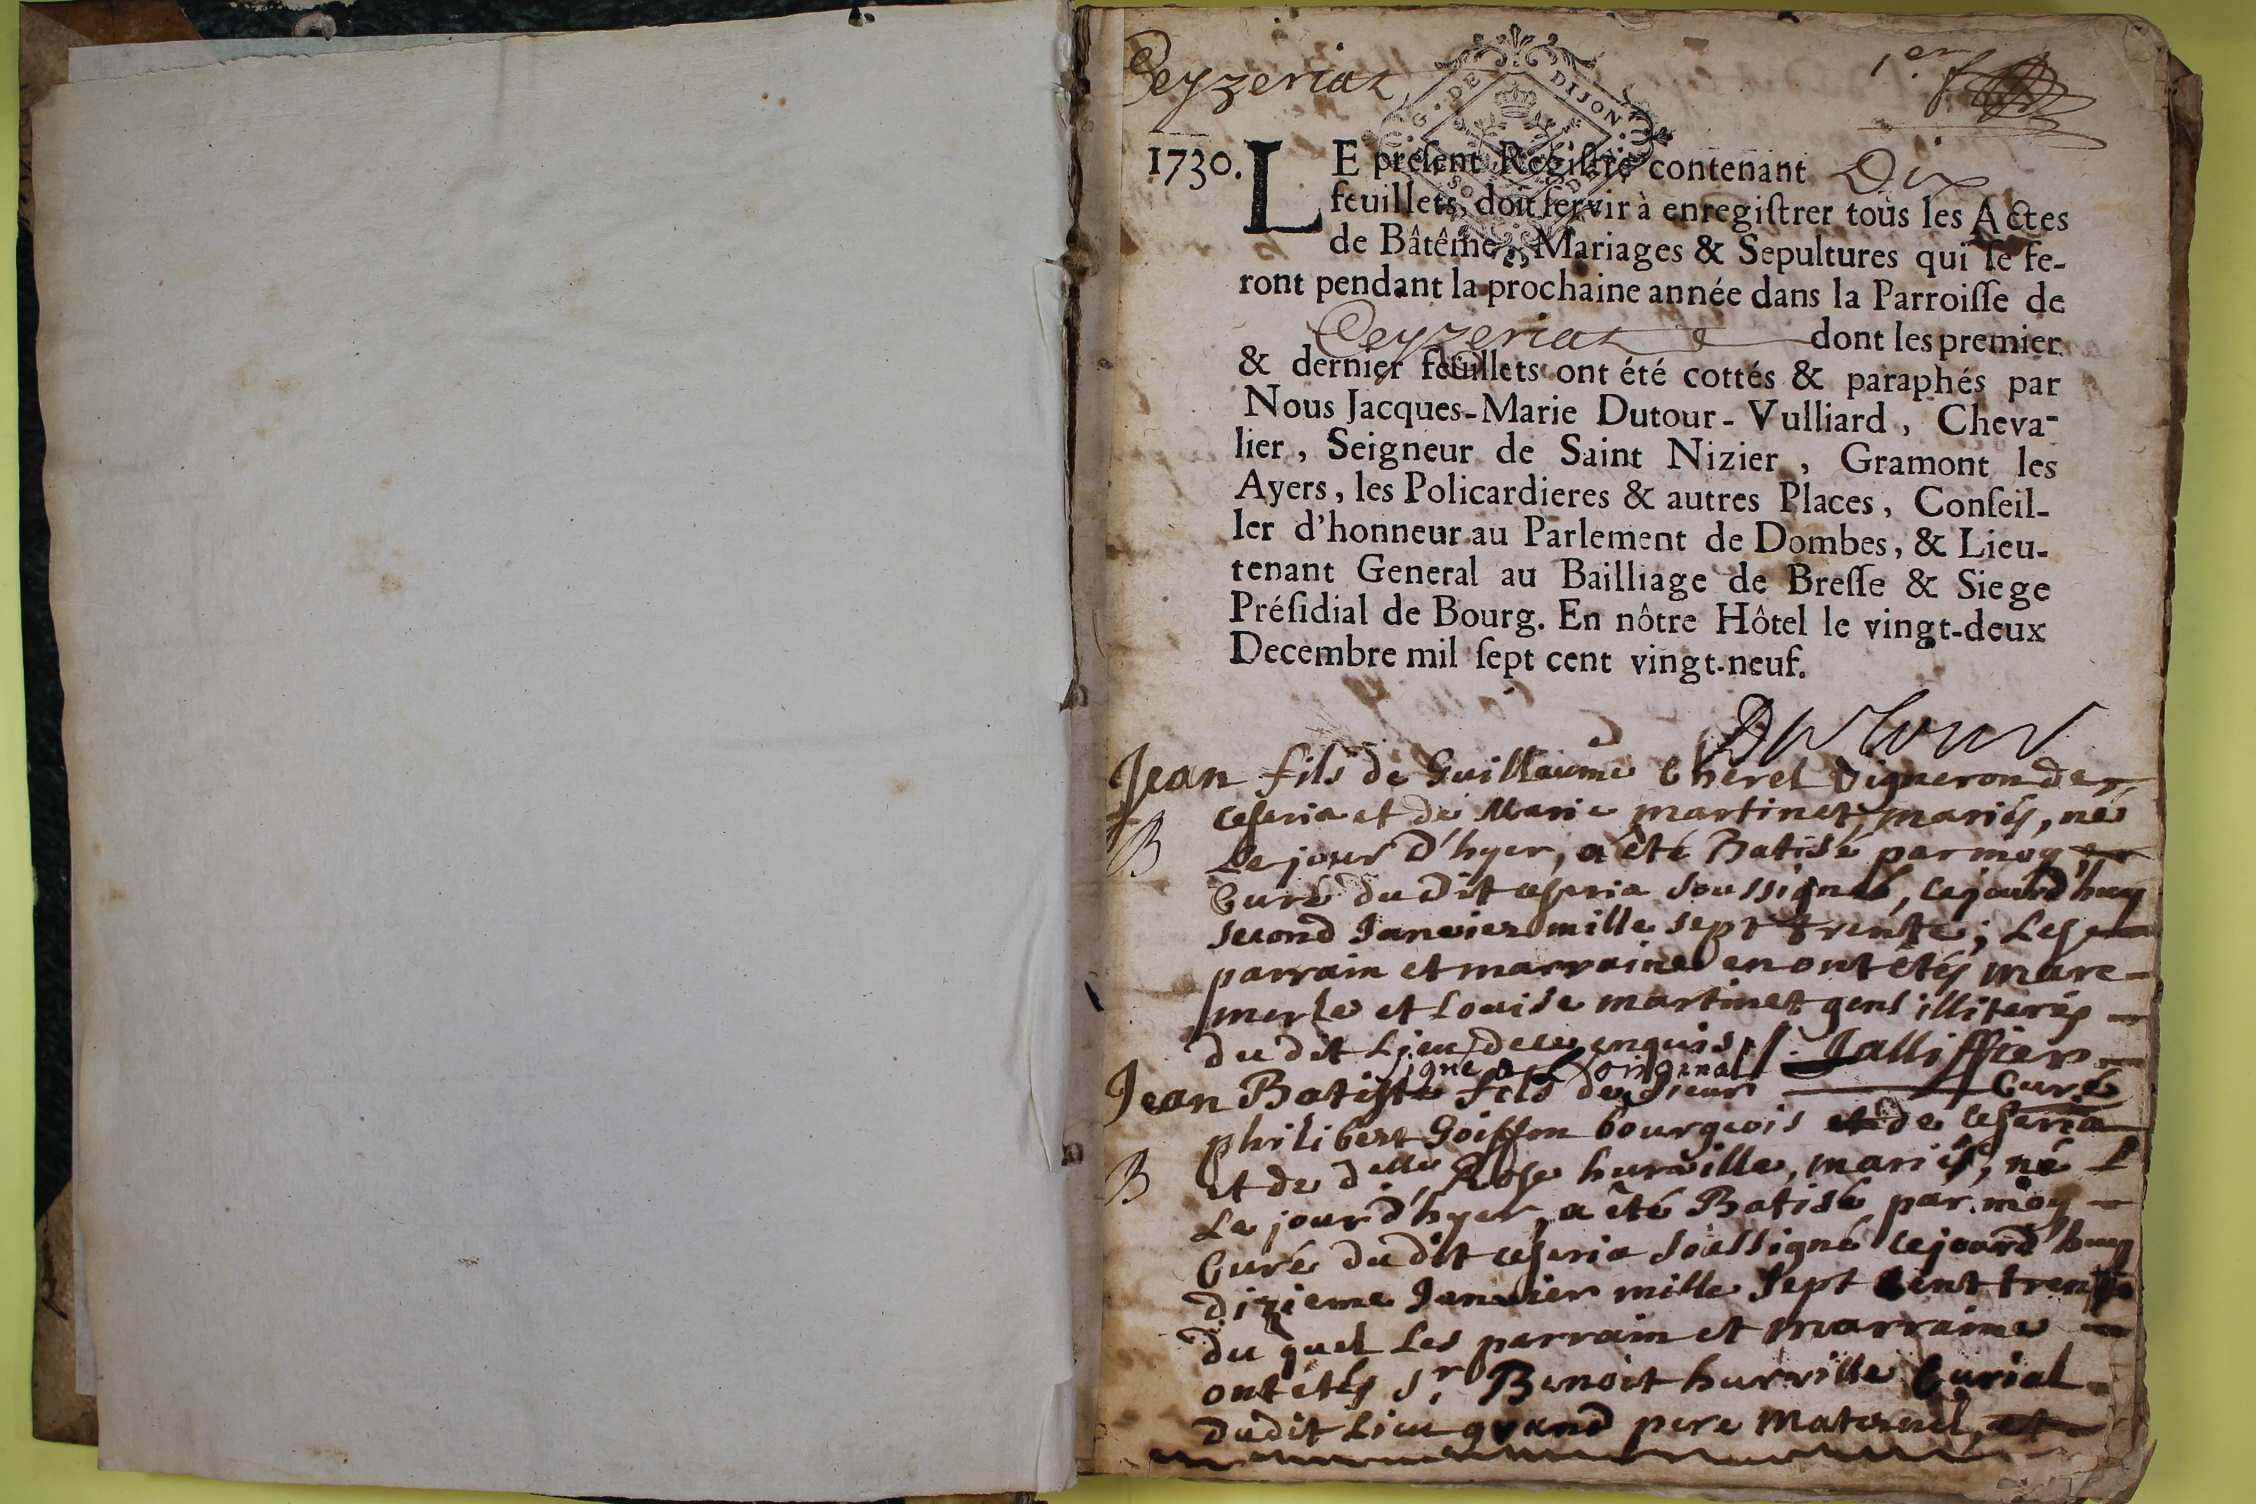 Ceyzeriat
1er f
G. DE DIJON
1730. LE preſent Regiſtre contenant Dix
feuillets, doit ſervir à enregiſtrer tous les Actes
de Bâtême, Mariages & Sepultures qui ſe fe-
ront pendant la prochaine année dans la Parroiſſe de
Ceyzeriat dont les premier
& dernier feüillets ont été cottés & paraphés par
Nous Jacques-Marie Dutour-Vulliard, Cheva-
lier, Seigneur de Saint Nizier, Gramont les
Ayers, les Policardieres & autres Places, Conſeil-
ler d'honneur au Parlement de Dombes, & Lieu-
tenant General au Bailliage de Breſſe & Siege
Préſidial de Bourg. En nôtre Hôtel le vingt-deux
Decembre mil ſept cent vingt-neuf.
Dutour
Jean fils de Guillaume Cherel Vigneron de
ceseria et de Marie martinet, mariés, né
B Le jour d'hyer, a êté Batisé par moy
Curé du dit ceseria soussigné, cejourd'huy
second Janvier mille sept trente; Les
parrain et marraine en ont étés marc
merle et Louise martinet gens illiterés
du dit Lieu, de ce enquis / Jalliffier
signé à L'original Curé
Jean Batiste fils de Sieur
philibert Goiffon bourgeois de ceseria
B et de delle Rose hurville, mariés, né
Le jour d'hyer, a êté Batisé par moy
Curé du dit ceseria soussigné cejourd'huy
dizieme Janvier mille sept cent trente
du quel Les parrain et marraine
ont étés Sr Benoit hurville Curial
du dit Lieu grand pere maternel, et